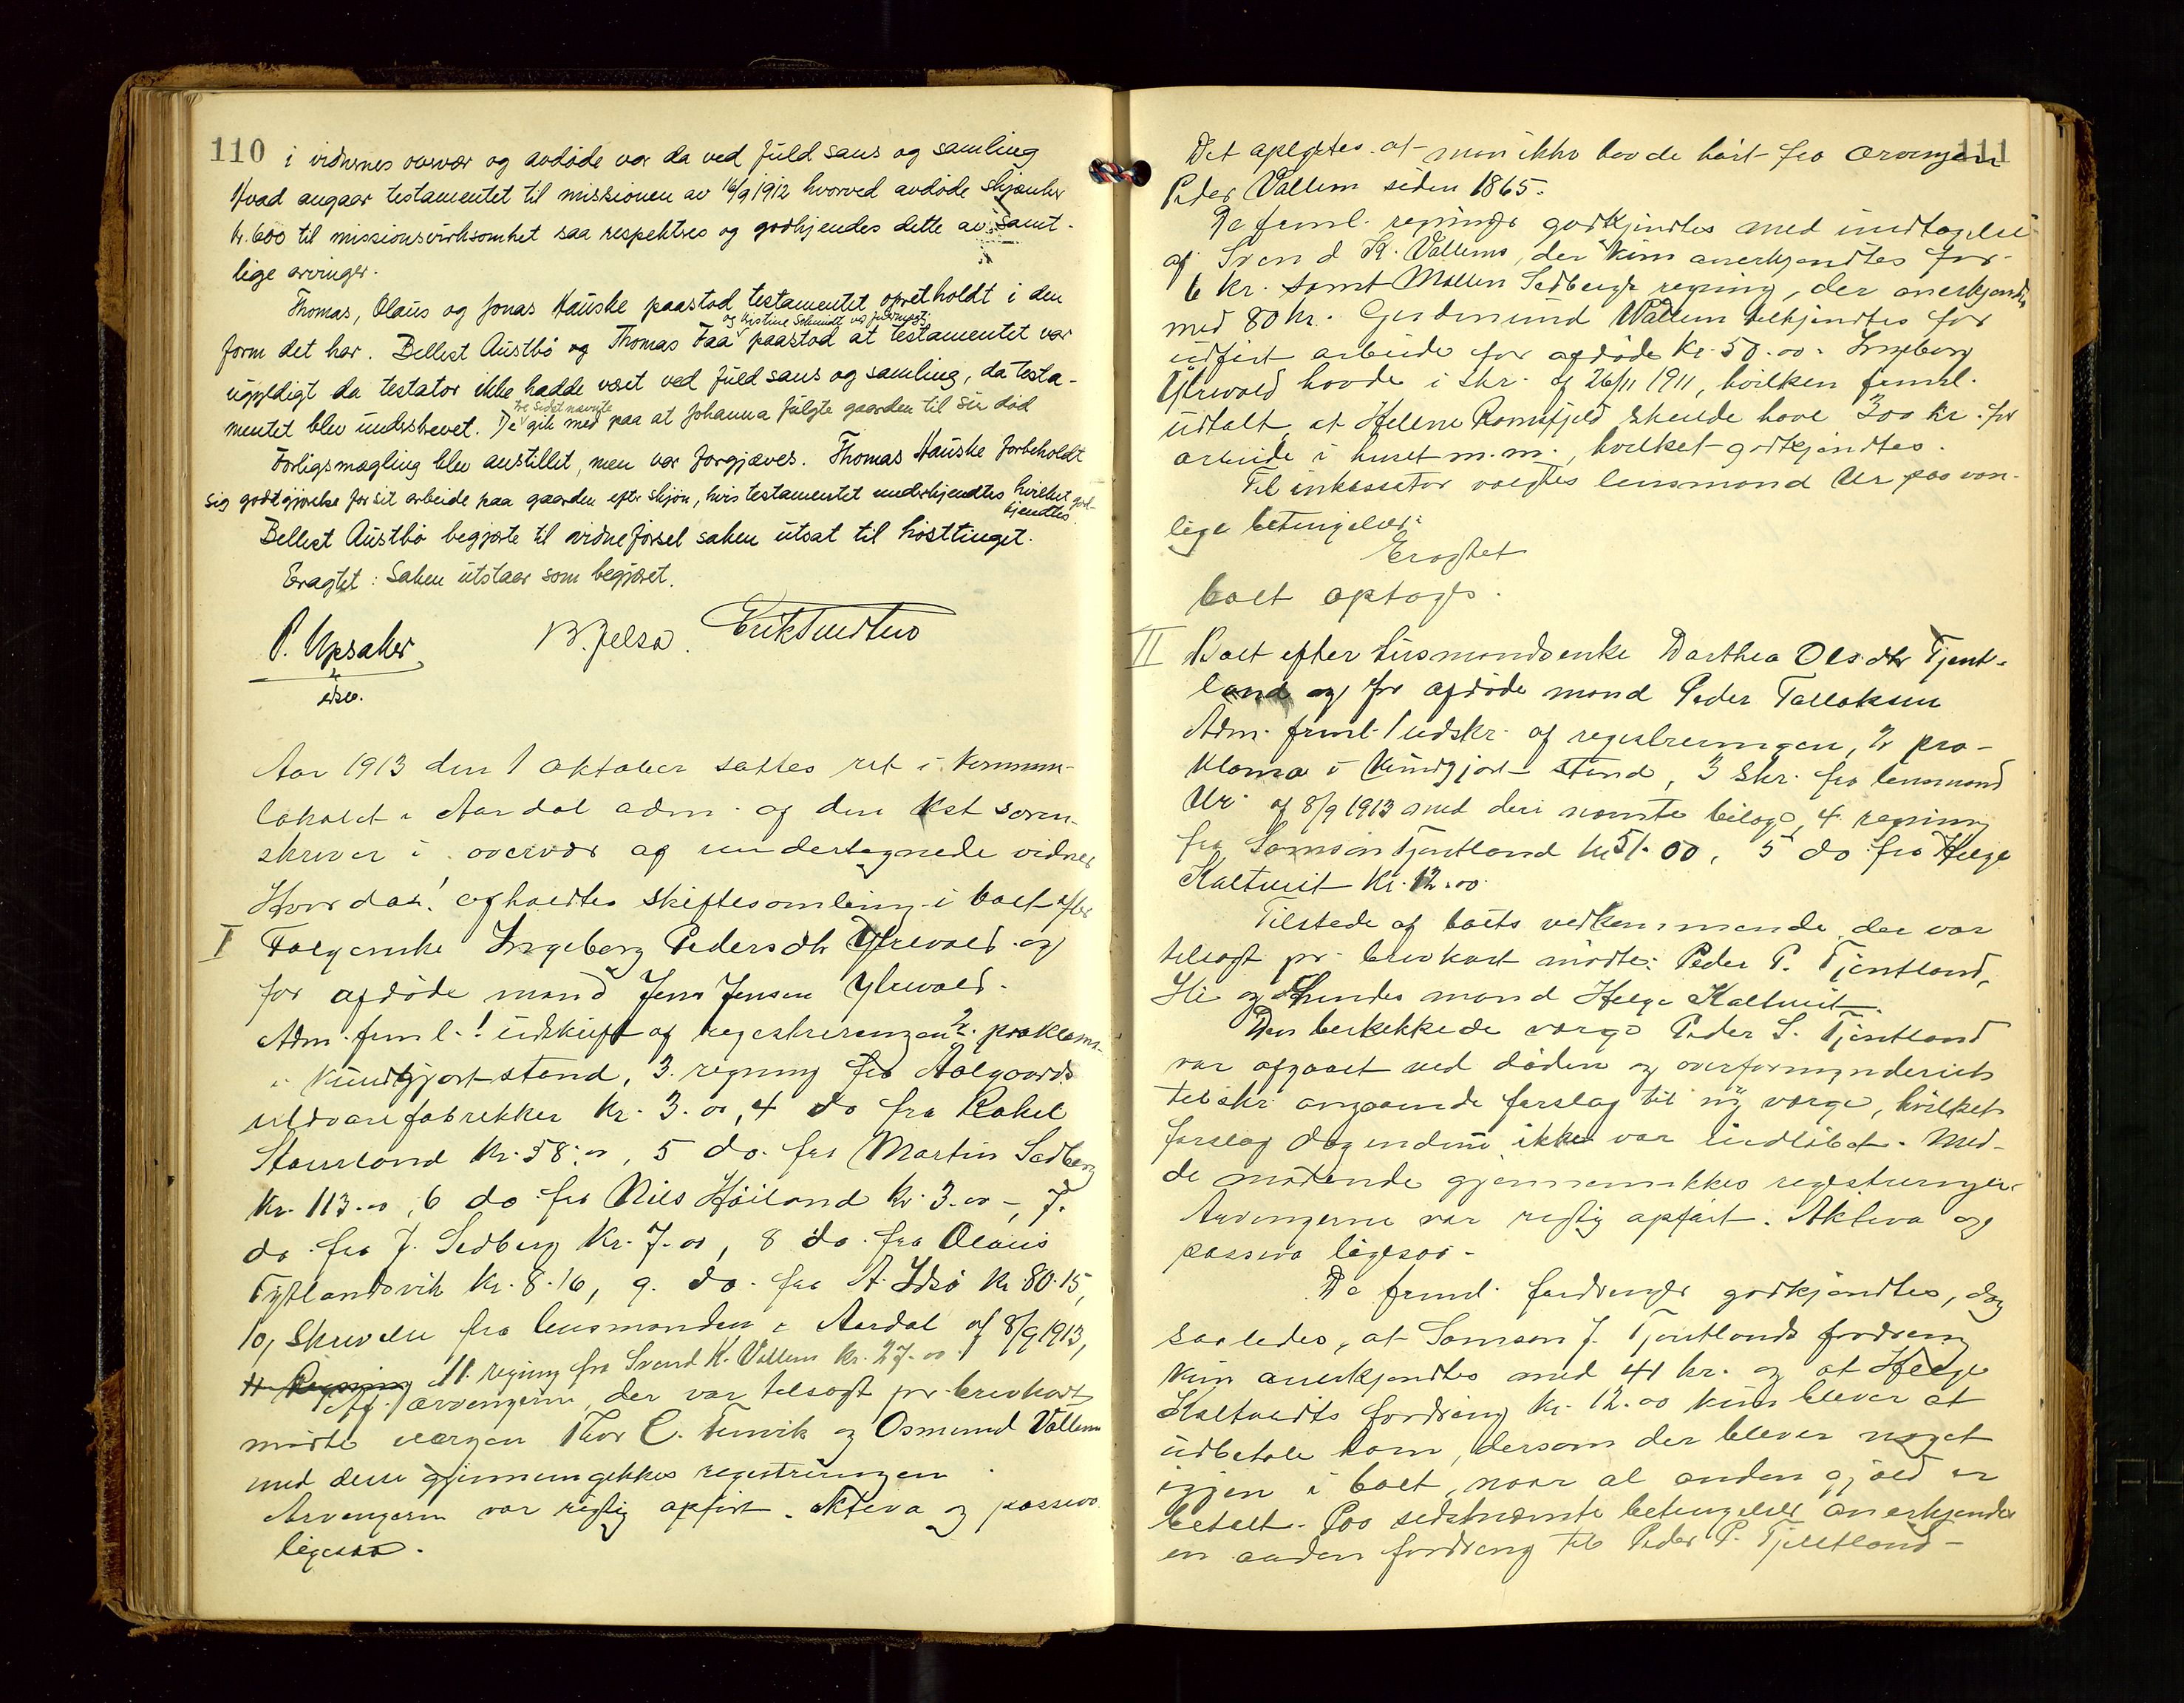 110
i vidnernes overvær og avdøde var da ved fuld sans og samling
Hvad angaar testamentet til missionen av 16/9 1912 hvorved avdøde skjænker
kr. 600 til missionsvirksomhet saa respekteres og godkjendes dette av samt-
lige arvinger.
Thomas, Olaus og Jonas Hauske paastod testamentet opretholdt i den
og Kristine Schmidt ved fuldmægt.
form det har. Bellest Austbø og Thomas Faa paastod at testamentet var
ugyldigt da testator ikke hadde været ved fuld sans og samling, da testa-
tre sidst nævnte
mentet blev underskrevet. De gik med paa at Johanna fulgte gaarden til sin død
Forligsmægling blev anstillet, men var forgjæves. Thomas Hauske forbeholdt
sig godtgjørelse for sit arbeide paa gaarden efter skjøn, hvis testamentet underkjendtes hvilket god-
kjendtes.
Bellest Austbø begjærte til vidneførsel saken utsat til høsttinget.
Eragtet: Saken utstaar som begjæret.
P. Upsaker B. Jelsa. Erik Tuedtuo
edsv.
Aar 1913 den 1 oktober sattes ret i kommune-
lokalet i Aardal adm. af den kst soren-
skriver i overvær af undertegnede vidner
Hvor da: ! afholdtes skiftesamling i boet efter
I Folgeenke Ingeborg Pedersdtr Ylvevold og
for afdøde mand Jens Jensen Ylvevold.
Adm. freml. ! udskrift af registreringen, 2. proklama
i kundgjort stand, 3. regning fra Aalgaards
uldvarefabrekker kr. 3.00, 4 do fra Rakel
Staurland kr. 58.00, 5 do. fra Martin Sedberg
kr. 113.00, 6 do fra Nils Høiland kr. 3.00 -, 7.
do. fra J. Sedberg kr. 7.00, 8 do. fra Olaus
Tytlandsvik kr. 8.16, 9. do. fra A. Idsø kr. 80.15,
10, skrivelse fra lensmanden i Aardal af 8/9 1913,
11 Regning 11. regning fra Svend K. Vallem kr. 27.00.
Af arvingerne, der var tilsagt pr. brevkort
mødte værgen Thor C. Tunvik og Osmund Vallem
med disse gjennemgikkes registreringen.
Arvingerne var rigtig opført. Aktiva og passiva
ligesaa.
111
Det oplystes at man ikke havde hørt fra arvingen
Peder Vallem siden 1865.
De freml. regninger godkjendtes med undtagelse
af Svend K. Vallems, der kun anerkjendtes for
6 kr. samt Martin Sedbergs regning, der anerkjendtes
med 80 kr. Gudmund Wallem tilkjendtes for
udført arbeide for afdøde kr. 50.00. Ingeborg
Ylvevold havde i skr. af 26/11 1911, hvilken freml.
udtalt, at Helene Ramsfjeld skulde have 300 kr. for
arbeide i huset m.m., hvilket godkjendtes.
Til inkassator valgtes lensmand Ur paa van-
lige betingelser.
Eragtet
boet optages.
II Boet efter husmandsenke Darthea Olsdtr Tjent-
land og for afdøde mand Peder Tollaksen
Adm. freml. 1 udskr. af registreringen, 2 pro-
klama i kundgjort stand, 3 skr. fra lensmand
Ur af 8/9 1913 med deri nævnte bilag, 4 regning
fra Samson Tjentland kr 51.00, 5 do fra Helge
Kaltveit kr. 12.00.
Tilstede af boets vedkommende, der var
tilsagt pr. brevkort mødte: Peder P. Tjentland,
Hi og hendes mand Helge Kaltveit.
Den beskikkede værge Peder S. Tjentland
var afgaaet ved døden og overformynderiet
tilskr. angaaende forslag til ny værge, hvilket
forslag dog endnu ikke var indløbet. Med
de mødende gjennemgikkes registreringen.
Arvingerne var rigtig opført. Aktiva og
passiva ligesaa.
De freml. fordringer godkjendtes, dog
saaledes, at Samson J. Tjentlands fordring
kun anerkjendtes med 41 kr. og at Helge
Kaltveits fordring kr. 12.00 kun bliver at
udbetale ham, dersom der bliver noget
igjen i boet, naar al anden gjæld er
betalt. Paa sidstnævnte betingelse anerkjendes
en anden fordring til Peder P. Tjentland -